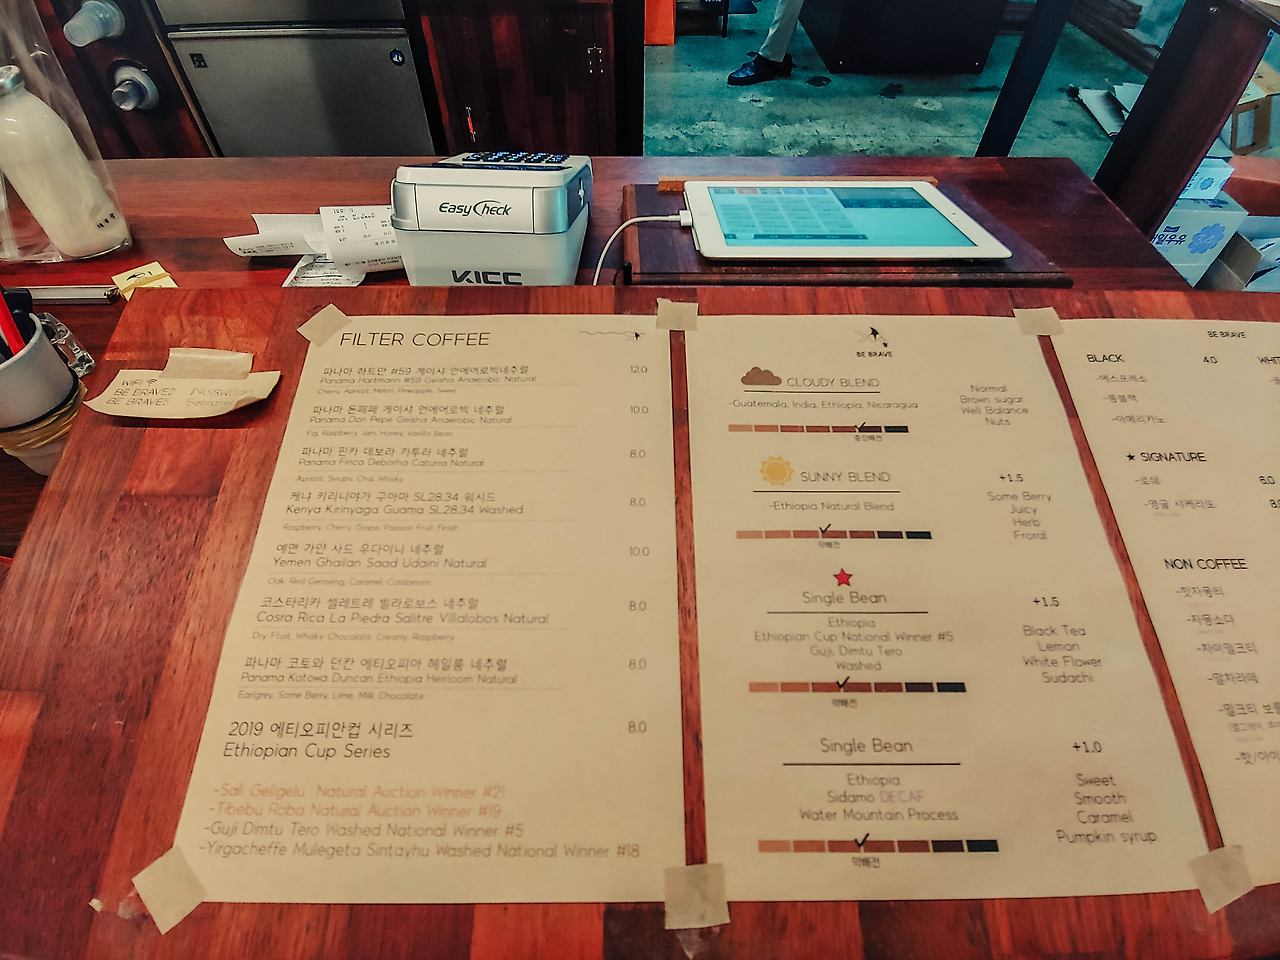 EasyCheck
KICC
WIFI
BE BRAVE2
BE BRAVE5
FILTER COFFEE
파나마 하트만 #59 게이샤 언에어로빅네추럴 12.0
Panama Hartmann #59 Geisha Anaerobic Natural
Cherry, Apricot, Melon, Pineapple, Sweet
파나마 돈페페 게이샤 언에어로빅 네추럴 10.0
Panama Don Pepe Geisha Anaerobic Natural
Fig, Raspberry Jam, Honey, Vanilla Bean
파나마 핀카 데보라 카투라 네추럴 8.0
Panama Finca Deborha Caturra Natural
Apricot, Syrupy, Chai, Whisky
케냐 키리니야가 구아마 SL28.34 워시드 8.0
Kenya Kirinyaga Guama SL28.34 Washed
Raspberry, Cherry, Grape, Passion Fruit, Finish
예맨 가얀 사드 우다이니 네추럴 10.0
Yemen Ghailan Saad Udaini Natural
Oak, Red Genseng, Caramel, Cardamom
코스타리카 셀레트레 빌라로보스 네추럴 8.0
Cosra Rica La Piedra Salitre Villalobos Natural
Dry Ftuit, Whisky Chocolate, Creamy, Raspberry
파나마 코토와 던칸 에티오피아 헤일룸 네추럴 8.0
Panama Kotowa Duncan Ethiopia Heirloom Natural
Earlgrey, Some Berry, Lime, Milk Chocolate
2019 에티오피안컵 시리즈 8.0
Ethiopian Cup Series
-Sali Geligelu Natural Auction Winner #21
-Tibebu Roba Natural Auction Winner #19
-Guji Dimtu Tero Washed National Winner #5
-Yirgacheffe Mulegeta Sintayhu Washed National Winner #18
BE BRAVE
CLOUDY BLEND
-Guatemala, India, Ethiopia, Nicaragua
중강배전
Normal
Brown sugar
Well Balance
Nuts
SUNNY BLEND +1.5
-Ethiopia Natural Blend
약배전
Some Berry
Juicy
Herb
Froral
Single Bean +1.5
Ethiopia
Ethiopian Cup National Winner #5
Guji, Dimtu Tero
Washed
약배전
Black Tea
Lemon
White Flower
Sudachi
Single Bean +1.0
Ethiopia
Sidamo DECAF
Water Mountain Process
약배전
Sweet
Smooth
Caramel
Pumpkin syrup
BE BRAVE
BLACK 4.0 WHIT
-에스프레소
-롱블랙
-아메리카노
★ SIGNATURE
-로쉐 6.0
-앵글 샤케리또
NON COFFEE
-핫자몽티
-자몽소다
-차이밀크티
-말차라떼